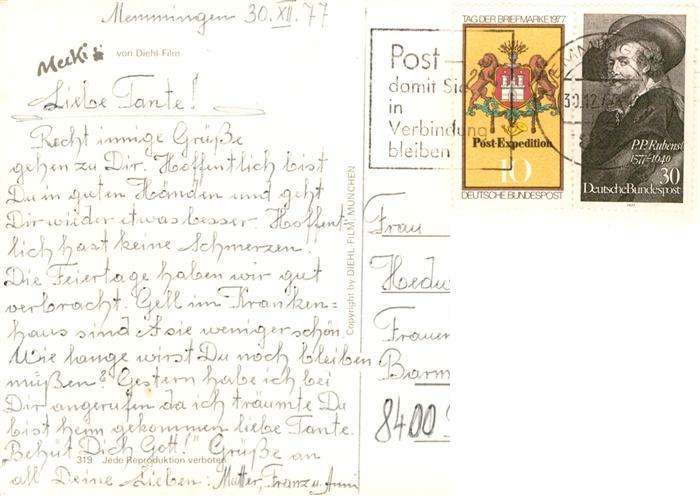 Memmingen 30.XII.77
Mecki
von Diehl-Film
Liebe Tante!
Recht innige Grüße
gehen zu Dir. Hoffentlich bist
Du in guten Händen und geht
Dir wieder etwas besser. Hoffent-
lich hast keine Schmerzen.
Die Feiertage haben wir gut
verbracht. Gell im Kranken=
haus sind sie weniger schön.
Wie lange wirst Du noch bleiben
müßen? Gestern habe ich bei
Dir angerufen da ich träumte Du
bist heim gekommen liebe Tante.
Behüt Dich Gott!" Grüße an
319 Jede Reproduktion verboten
all Deine Lieben: Mutter, Franz u. Anni
Copyright by DIEHL-FILM, MÜNCHEN
Post-
damit Sie
in
Verbindung
bleiben
TAG DER BRIEFMARKE 1977
Post-Expedition
10
DEUTSCHE BUNDESPOST
30.12.
P.P. Rubens
1577-1640
30
Deutsche Bundespost
Frau
Hedw
Frauen
Barm
8400